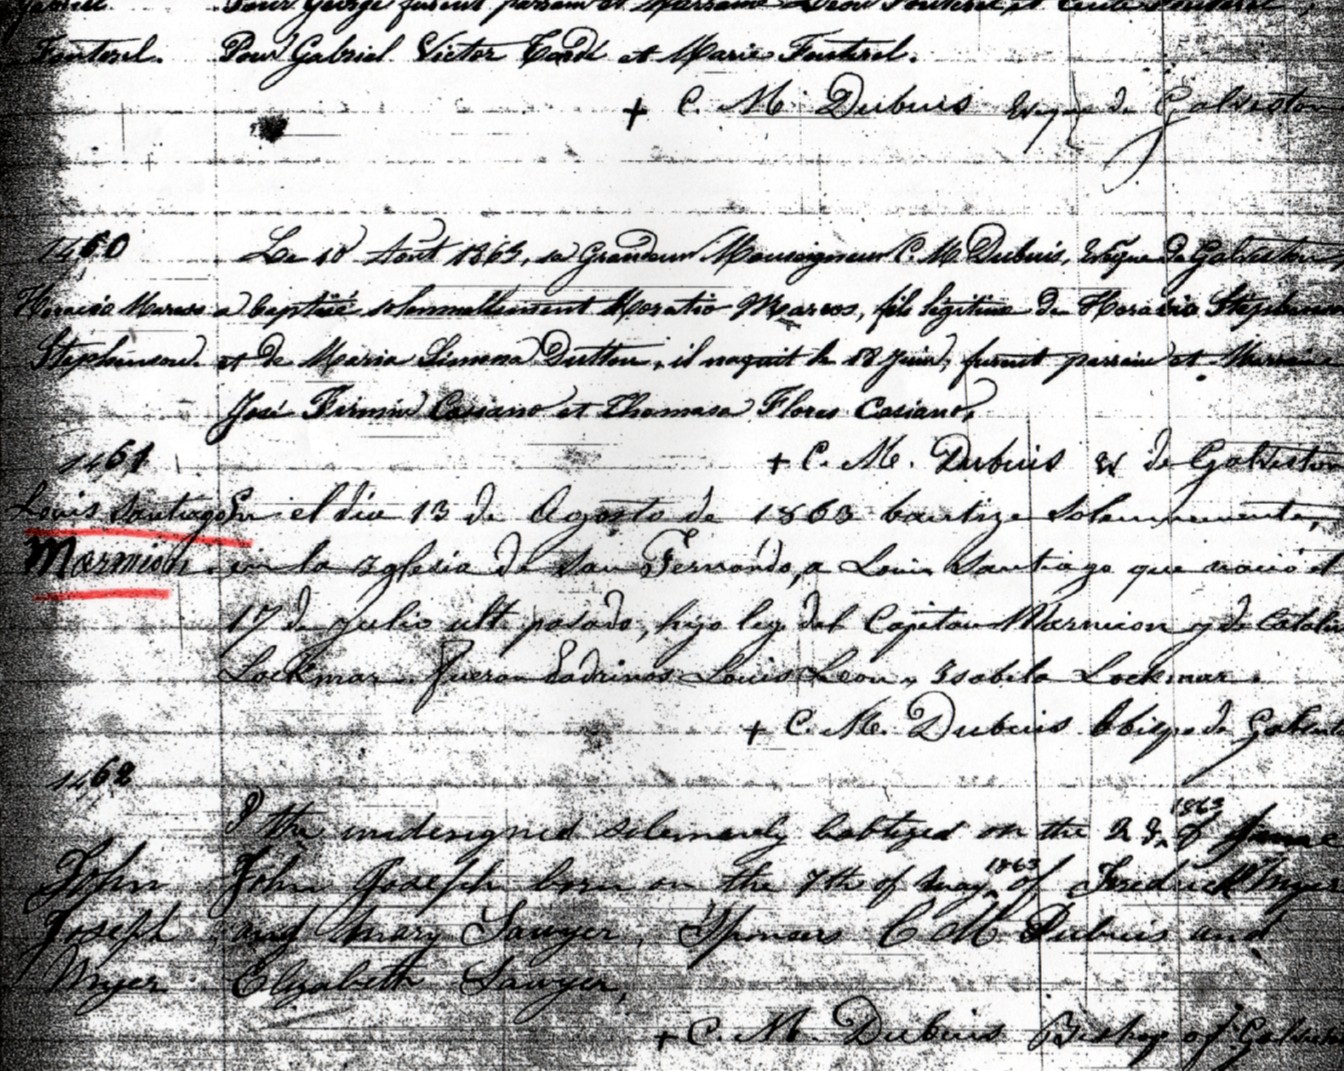 Pour George furent parrain et Marraine
Fonterel. Pour Gabriel Victor et Marie Fonterel.
+ C. M. Dubuis de Galveston
1460 Le 10 Août 1863, sa Grandeur Monseigneur C. M. Dubuis, Evêque de Galveston
Marcos a baptisé solennellement Horatio Marcos, fils légitime de Horacio Stephenson
Stephenson. et de Maria Dutton, il naquit le 18 Juin, furent parrain et Marraine
José Firmin Casiano et Thomasa Flores Casiano,
1461 + C. M. Dubuis de Galveston
Louis Santiago En el dia 13 de Agosto de 1863 bautize Solemnemente,
Marmion. en la Iglesia de San Fernando, a Louis Santiago que nació el
17 de Julio ult. pasado, hijo leg. del Capitan Marmion y de
Lockmar. fueron Padrinos Louis Leon y Isabela Lockmar.
+ C. M. Dubuis Obispo de
1462
1863
I the undersigned solemnely babtized on the of June
1863
John John Joseph born on the 7th of May of Fredrick
Joseph and Mary Sawyer, Sponsors C M Dubuis and
Myer Elizabeth Sawyer,
+ C. M. Dubuis Bishop of